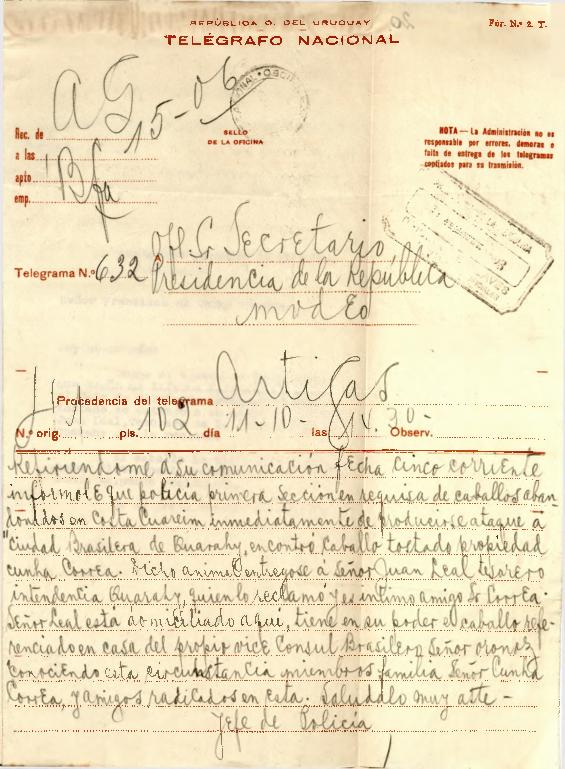 REPÚBLICA O. DEL URUGUAY
TELÉGRAFO NACIONAL
Fór. N.º 2. T.
AG
15-06
Rec. de
a las
apto
emp.
SELLO
DE LA OFICINA
NOTA — La Administración no es
responsable por errores, demoras o
falta de entrega de los telegramas
confiados para su trasmisión.
Telegrama N.º 632
A
Off Sr Secretario
Presidencia de la República
mvdeo
Procedencia del telegrama Artigas
N.º orig. 1 pls. 102 día 11-10- las 30- Observ.
Refiriendome á su comunicación fecha cinco corriente
informole que policía primera sección en requisa de caballos aban
donados en costa Cuareim inmediatamente de producirse ataque á
ciudad Brasilera de Quarahy, encontró caballo tostado propiedad
cunha Correa. Dicho animal entregose á Señor Juan Leal tesorero
intendencia Quarahy, quien lo reclamó y es intimo amigo Sr Correa.
Señor Leal está domiciliado aqui, tiene en su poder el caballo refe-
renciado en casa del propio vice Consul Brasilero Señor Oronoz
conociendo esta circunstancia miembros familia Señor Cunha
Correa, y amigos radicados en esta. Saludalo muy atte-
Jefe de Policía